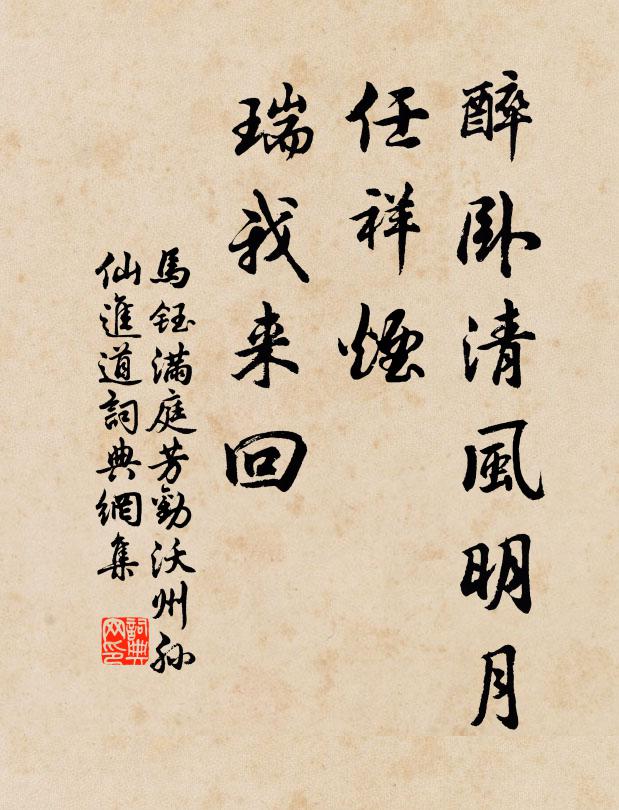 醉卧清風明月
任祥煙
瑞我来回
馬鈺滿庭芳勸沃州孫
仙進道詞典網集
詞典
网印